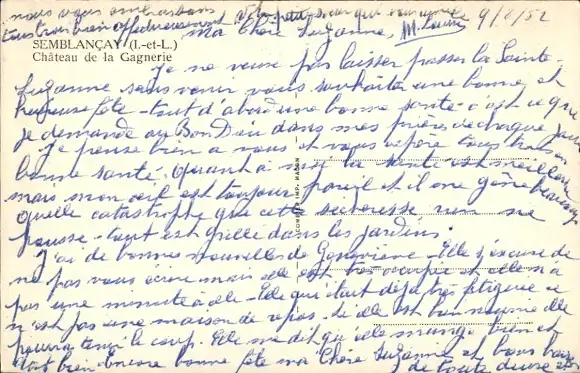 nous vous embrassons
tous trois bien affectueusement Votre petite soeur qui vous aime
M. Louise
ma Chère Suzanne, 9/8/52
SEMBLANÇAY (I.-et-L.)
Château de la Gagnerie
Je ne veux pas laisser passer la Sainte
Suzanne sans venir vous souhaiter une bonne et
heureuse fête - tout d'abord une bonne santé - c'est ce que
je demande au Bon Dieu dans mes prières de chaque jour
Je pense bien à vous et vous espère tous trois en
bonne santé. quant à moi la santé est meilleure
mais mon oeil est toujours pareil et il me gêne beaucoup
quelle catastrophe que cette sécheresse rien ne
pousse - tout est grillé dans les jardins.
J'ai de bonnes nouvelles de Geneviève - Elle s'excuse de
ne pas vous écrire mais elle est très occupée et elle n'a
pas une minute à elle - Elle qui était déjà très fatiguée ce
n'est pas une maison de repos - si elle est bien nourrie elle
pourra tenir le coup. Elle me dit qu'elle mange bien et
dort bien - Encore bonne fête ma Chère Suzanne et bons baisers
de toute